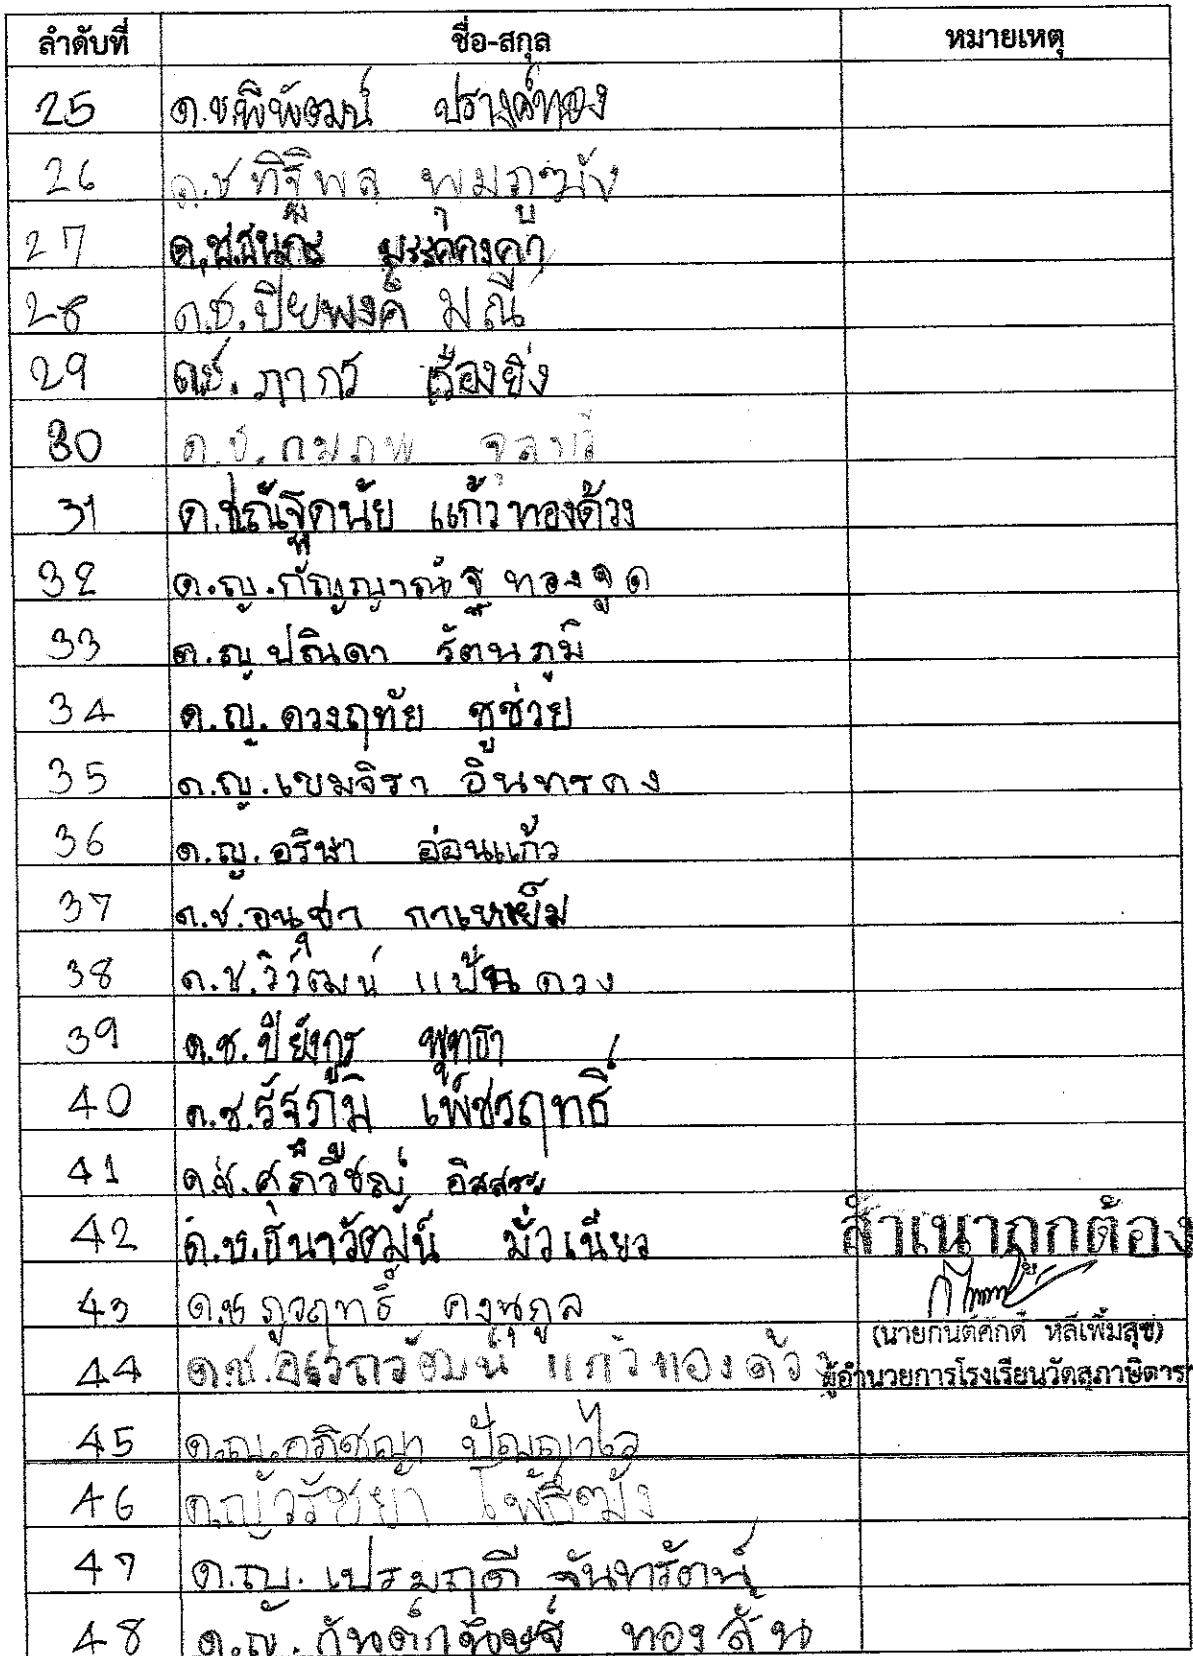 ลำดับที่ ชื่อ-สกุล หมายเหตุ
25 ด.ช.พิพัฒน์ ปรางค์ทอง
26 ด.ช ทิฐิพล
27 ด.ช.
28 ด.ช.ปิยพงค์ มณี
29 ด.ช. ภากร เรืองยิ่ง
30 ด.ช.
31 ด.ช.ณัฐดนัย แก้วทองด้วง
32 ด.ญ.กัญญาณัฐ ทองจูด
33 ด.ญ ปณิดา รัตนภูมิ
34 ด.ญ. ดวงฤทัย ชูช่วย
35 ด.ญ.เขมจิรา อินทรคง
36 ด.ญ.อริษา อ่อนแก้ว
37 ด.ช.อนุชา กาเหย็ม
38 ด.ช.วิวัฒน์ แป้นดวง
39 ด.ช.ปิยังกูร พุทธา
40 ด.ช.รัฐภูมิ เพ็ชรฤทธิ์
41 ด.ช.ศุภวิชญ์ อิสสระ
42 ด.ช.ธนาวัฒน์ มั่วเนียว
สำเนาถูกต้อง
43 ด.ช ภูวฤทธิ์ คงนุกูล
(นายกันต์ศักดิ์ หลีเพิ่มสุข)
44 ด.ช. แก้วทองด้วง
ผู้อำนวยการโรงเรียนวัดสุภาษิตาร
45 ด.ญ.อภิชญา ปัญญาไว
46 ด.ญ วรัชยา โพธิ์ฒัง
47 ด.ญ. เปรมฤดี จันทรัตน์
48 ด.ญ. ทองล้น